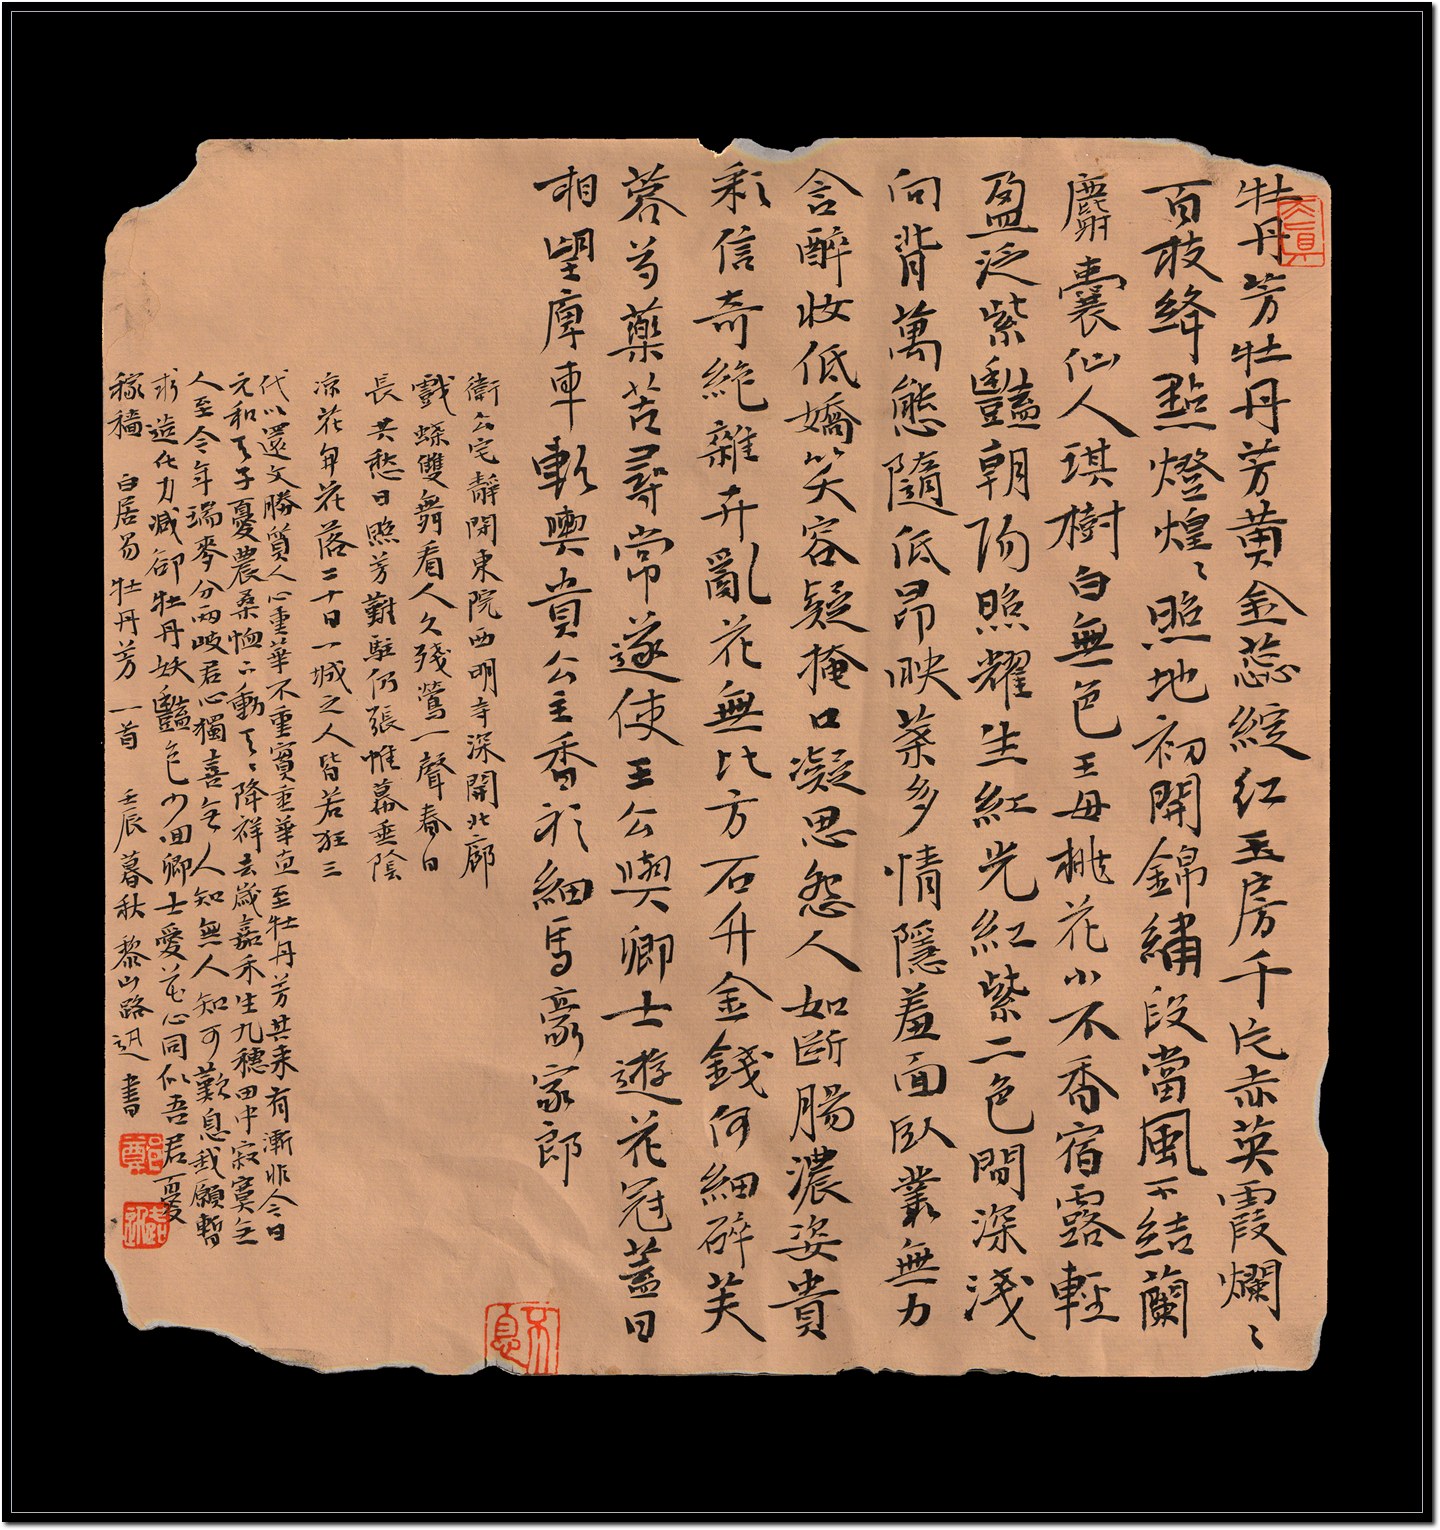 牡丹芳牡丹芳黄金蕊綻红玉房千片赤英霞爛〻
百枝絳點燈煌〻照地初開錦繡段當風不結蘭
麝囊仙人琪樹白無色王母桃花小不香宿露輕
盈泛紫豔朝陽照耀生紅光紅紫二色間深淺
向背萬態隨低昂映葉多情隱羞面臥叢無力
含醉妝低嬌笑容疑掩口凝思怨人如断腸濃姿貴
彩信奇絶雜卉亂花無比方石竹金錢何細碎芙
蓉芍藥苦尋常遂使王公與卿士遊花冠蓋日
相望庳車軟輿貴公主香衫細馬豪家郎
衛公宅靜閉東院西明寺深開北廊
戲蝶雙舞看人久殘鶯一聲春日
長共愁日照芳難駐仍張帷幕垂陰
凉花開花落二十日一城之人皆若狂三
代以還文勝質人心重華不重實重華直至牡丹芳其来有漸非今日
元和天子憂農桑恤下動天〻降祥去歲嘉禾生九穗田中寂寞無
人至今年瑞麥分兩岐君心獨喜無人知無人知可歎息我願暫
求造化力減卻牡丹妖豔色少回卿士愛花心同似吾君憂
稼穡 白居易牡丹芳一首 壬辰暮秋黎山路迅書